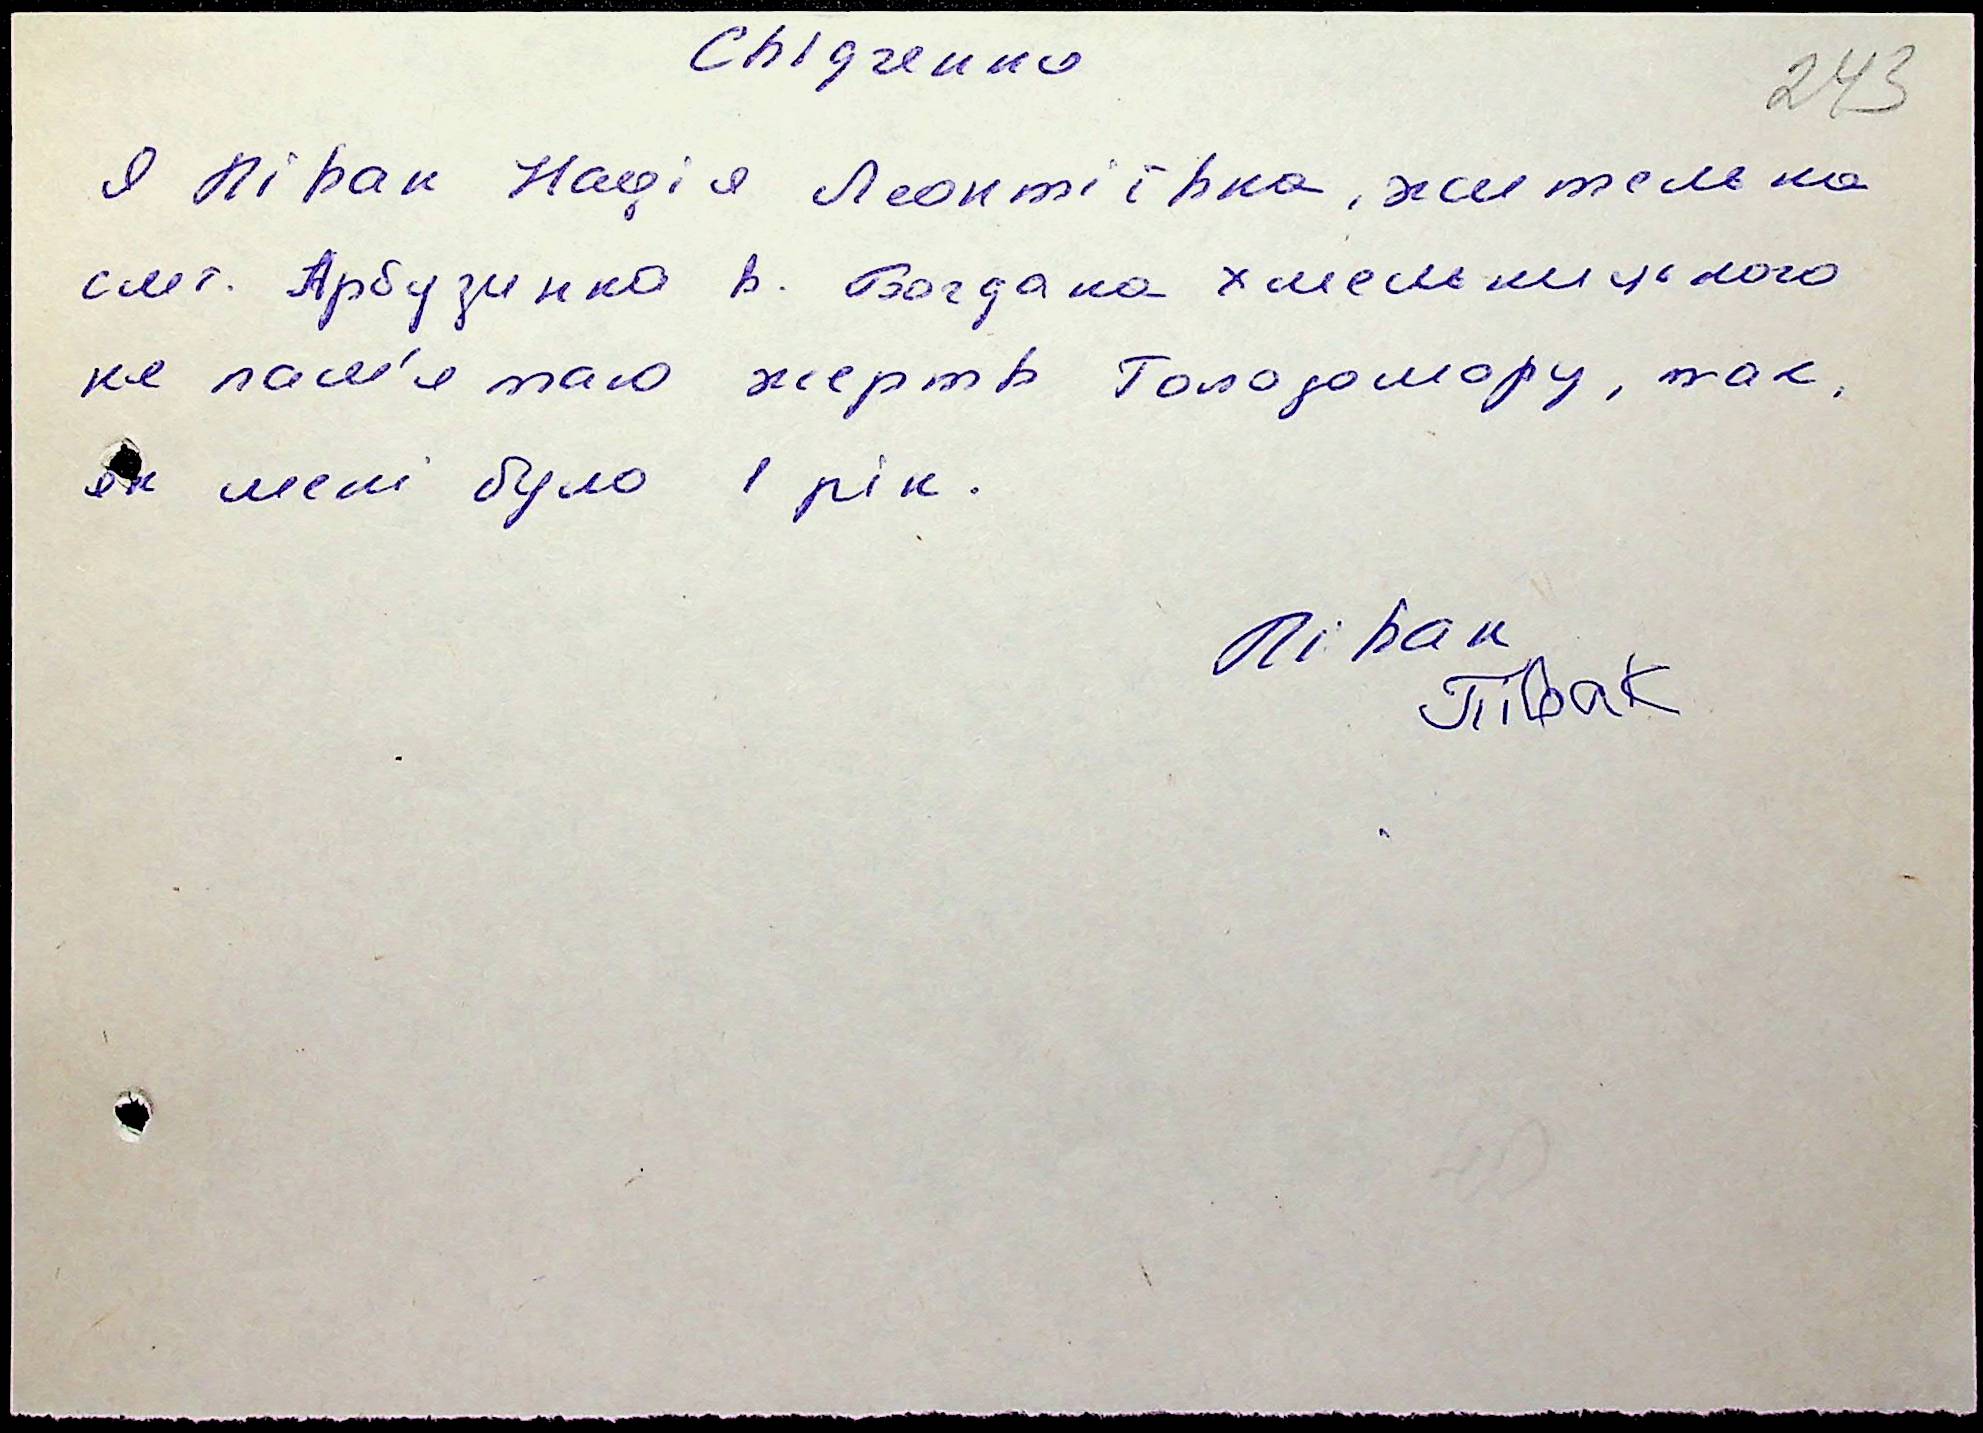 Свідчення
243
Я Півак Надія Леонтіївна, жителька
смт. Арбузинка в. Богдана Хмельницького
не пам'ятаю жертв Голодомору, так,
як мені було 1 рік.
Півак
Півак